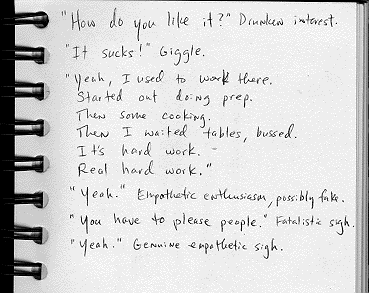 "How do you like it?" Drunken interest.
"It sucks!" Giggle.
"Yeah, I used to work there.
Started out doing prep.
Then some cooking.
Then I waited tables, bussed.
It's hard work. -
Real hard work."
"Yeah." Empathetic enthusiasm, possibly fake.
"You have to please people." Fatalistic sigh.
"Yeah." Genuine empathetic sigh.